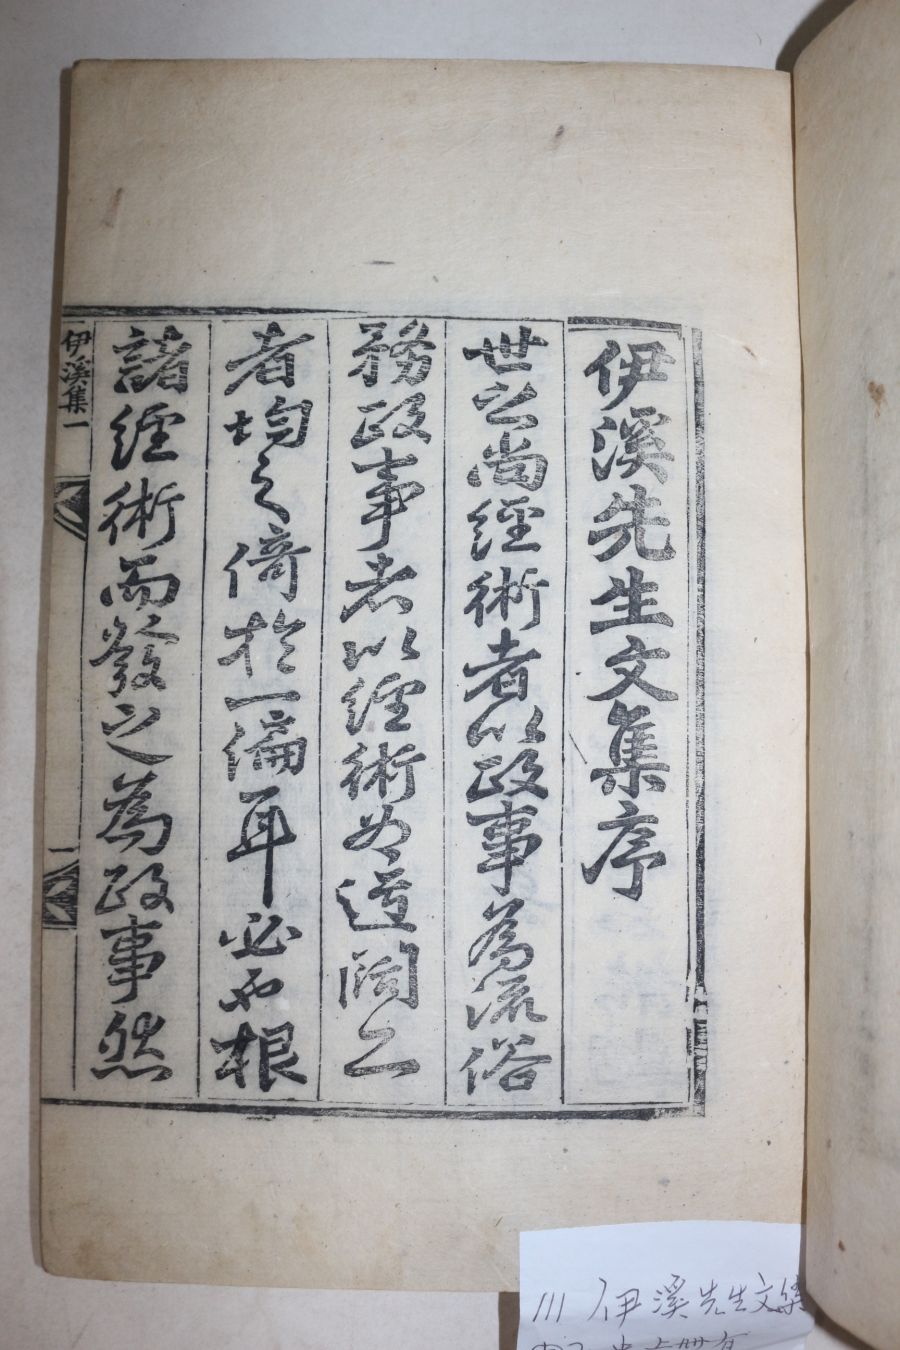 伊溪先生文集序
世之尚經術者以政事為流俗
務政事者以經術為迂闊二
者均之倚於一偏耳必也根
諸經術而發之為政事然
伊溪集一
一
111 伊溪先生文集